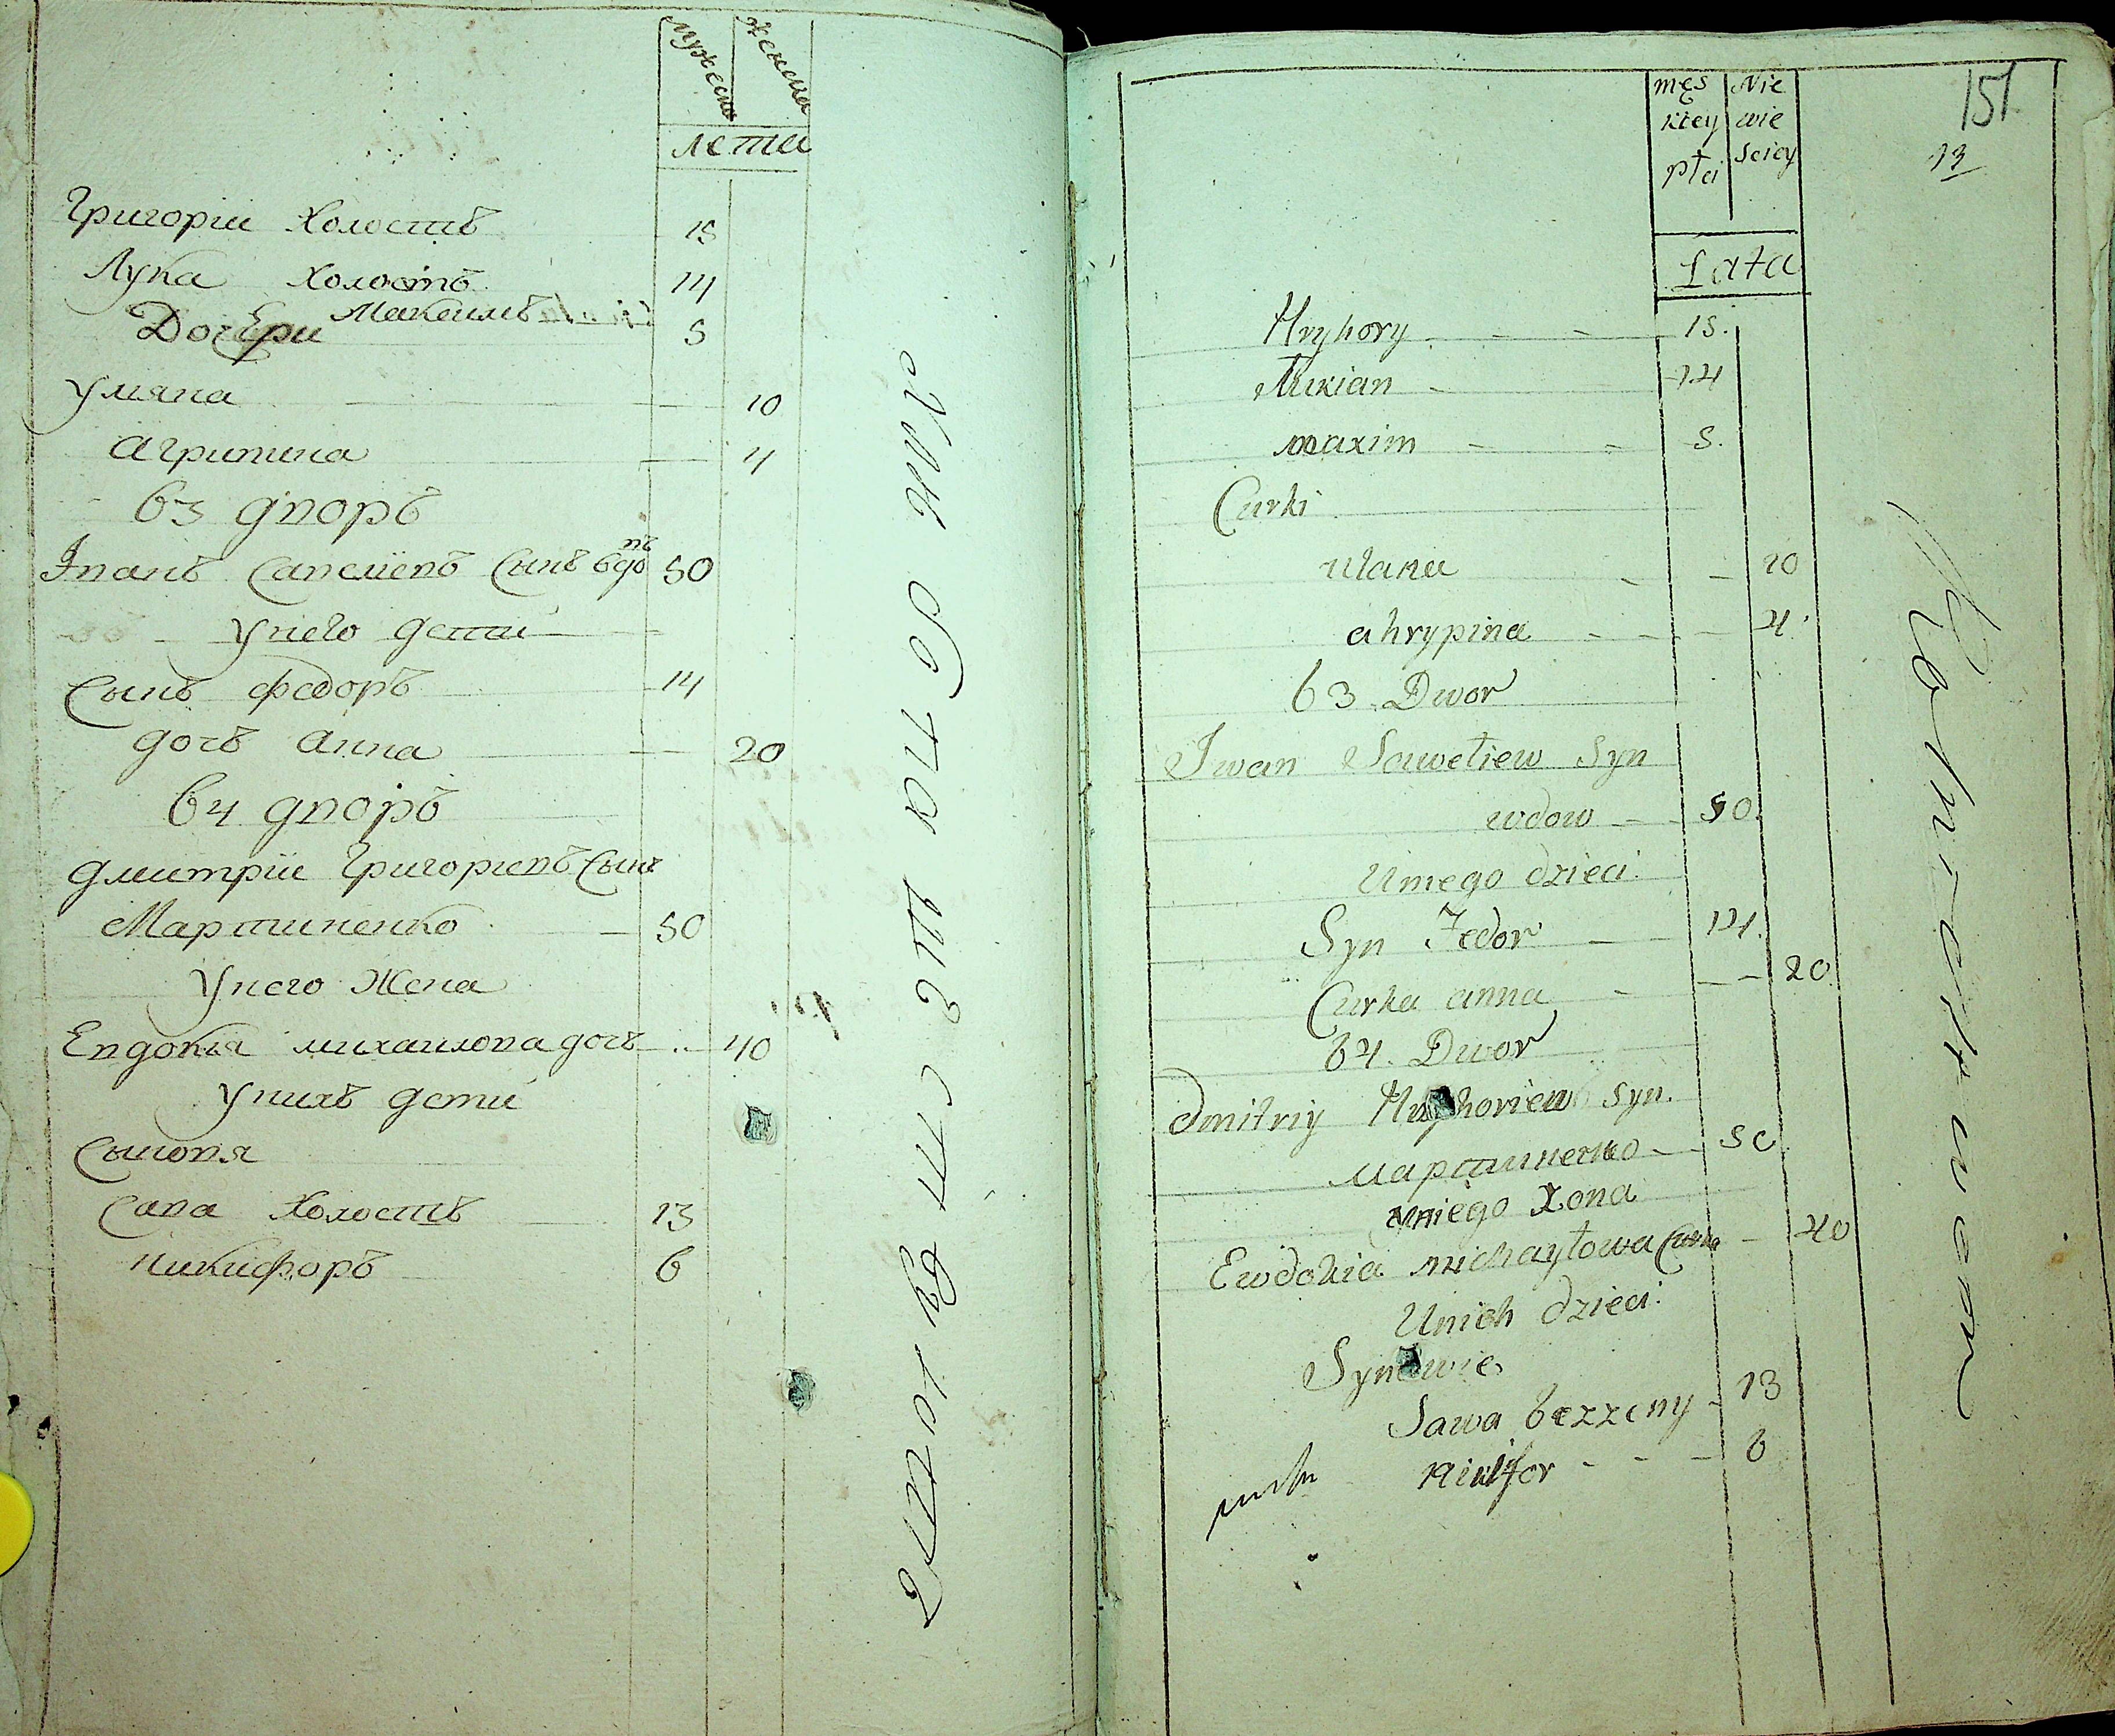 мужеска женска
лета
Григории холостъ 15
Лука холостъ 14
Максимъ 5
Дочери
Уляна 10
Агрипина 4
63 дворъ
Іванъ Савелиевъ сынъ вдовъ 50
У него дети
Сынъ Федоръ 14
дочъ Анна 20
64 дворъ
Дмитрїи Григориевъ сынъ
Мартиненко 50
У него жена
Евдокия Михаилова дочъ 40
У нихъ дети
Сыновя
Сава холостъ 13
Никифоръ 6
151
13
męs kiey płci Nie wie sciey
Lata
Hryhory 15.
Łukian 14
maxim 5.
Curki
Ulana 10
ahrypina 4
63 Dwor
Iwan Saweliew Syn
wdow 50.
Uniego dzieci
Syn Fedor 14.
Curka anna 20
64. Dwor
Dmitriy Hryhoriew Syn.
мартиненко 50
Uniego żona
Ewdokia michayłowa Curka 40
Unich dzieci
Synowie
Sawa bezzeny 13
Nikifor 6